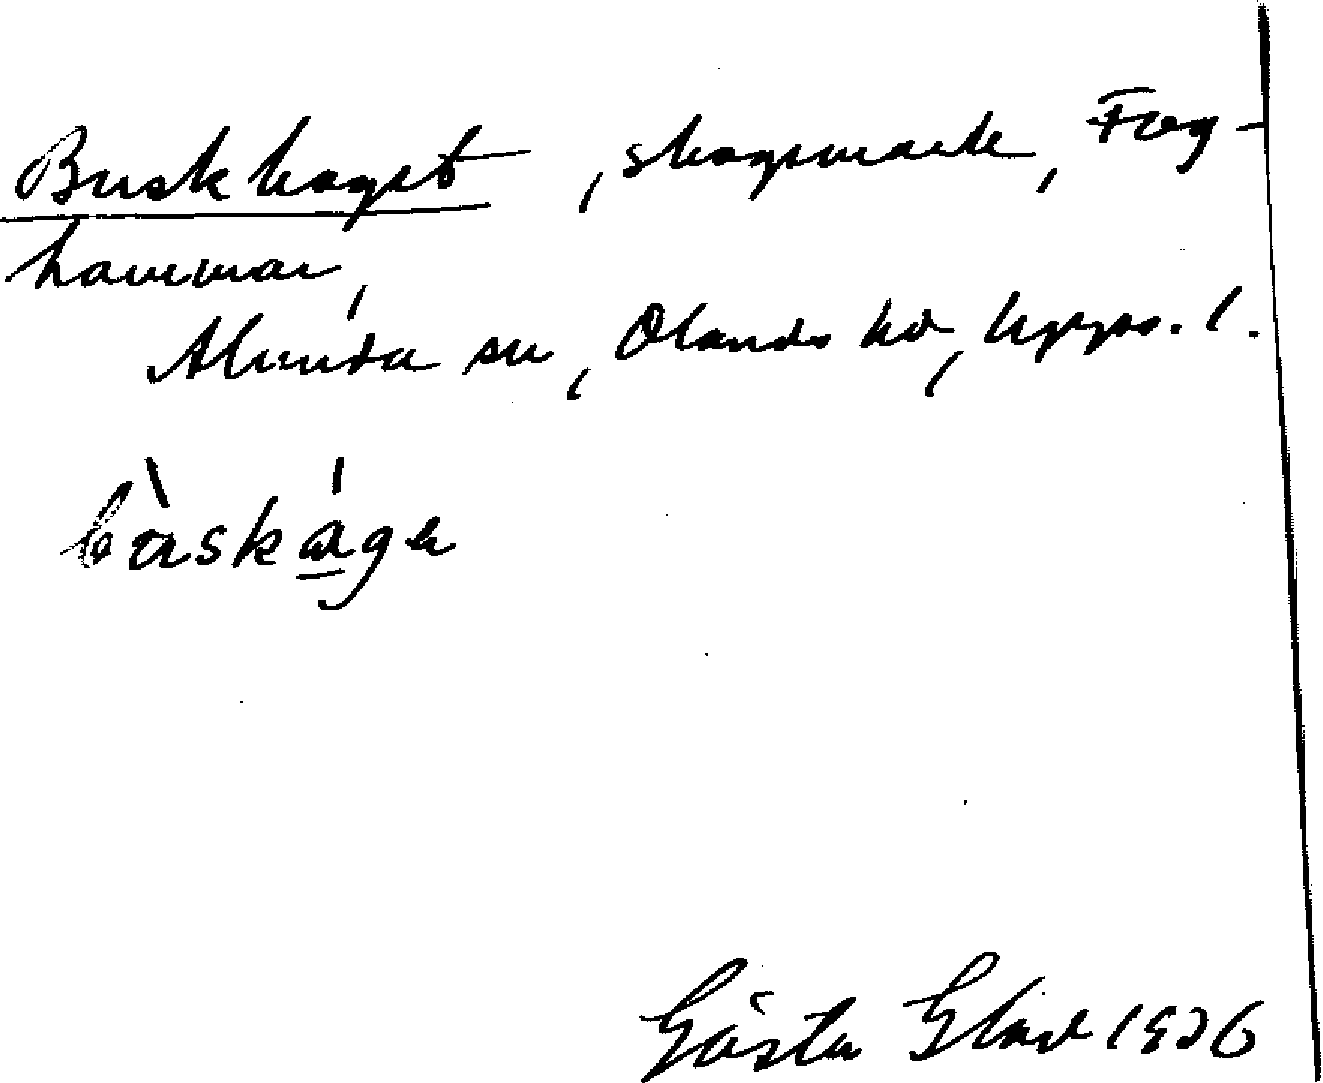 Buskhaget, skogsmark, Fag-
hammar,
Alunda sn, Olands hd, Upps. l.
bùskága
Gösta Glad 1926